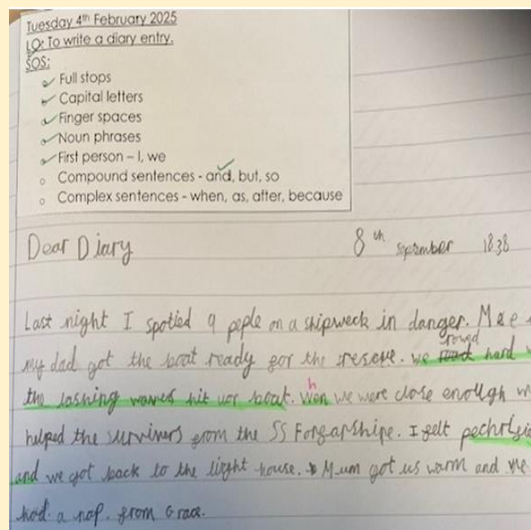 Tuesday 4th February 2025
LO: To write a diary entry.
SOS:
Full stops
Capital letters
Finger spaces
Noun phrases
First person – I, we
Compound sentences - and, but, so
Complex sentences - when, as, after, because
Dear Diary 8th September 1838
Last night I spotied 9 peple on a shipweck in danger. Me
my dad got the boat ready for the rescue. we rowed hard
the lashing waves hit uor boat. When we were close enough
helped the surviners from the SS Forfarshire. I felt
and we got back to the light house. Mum got us warm and we
had a nap. from Grace.